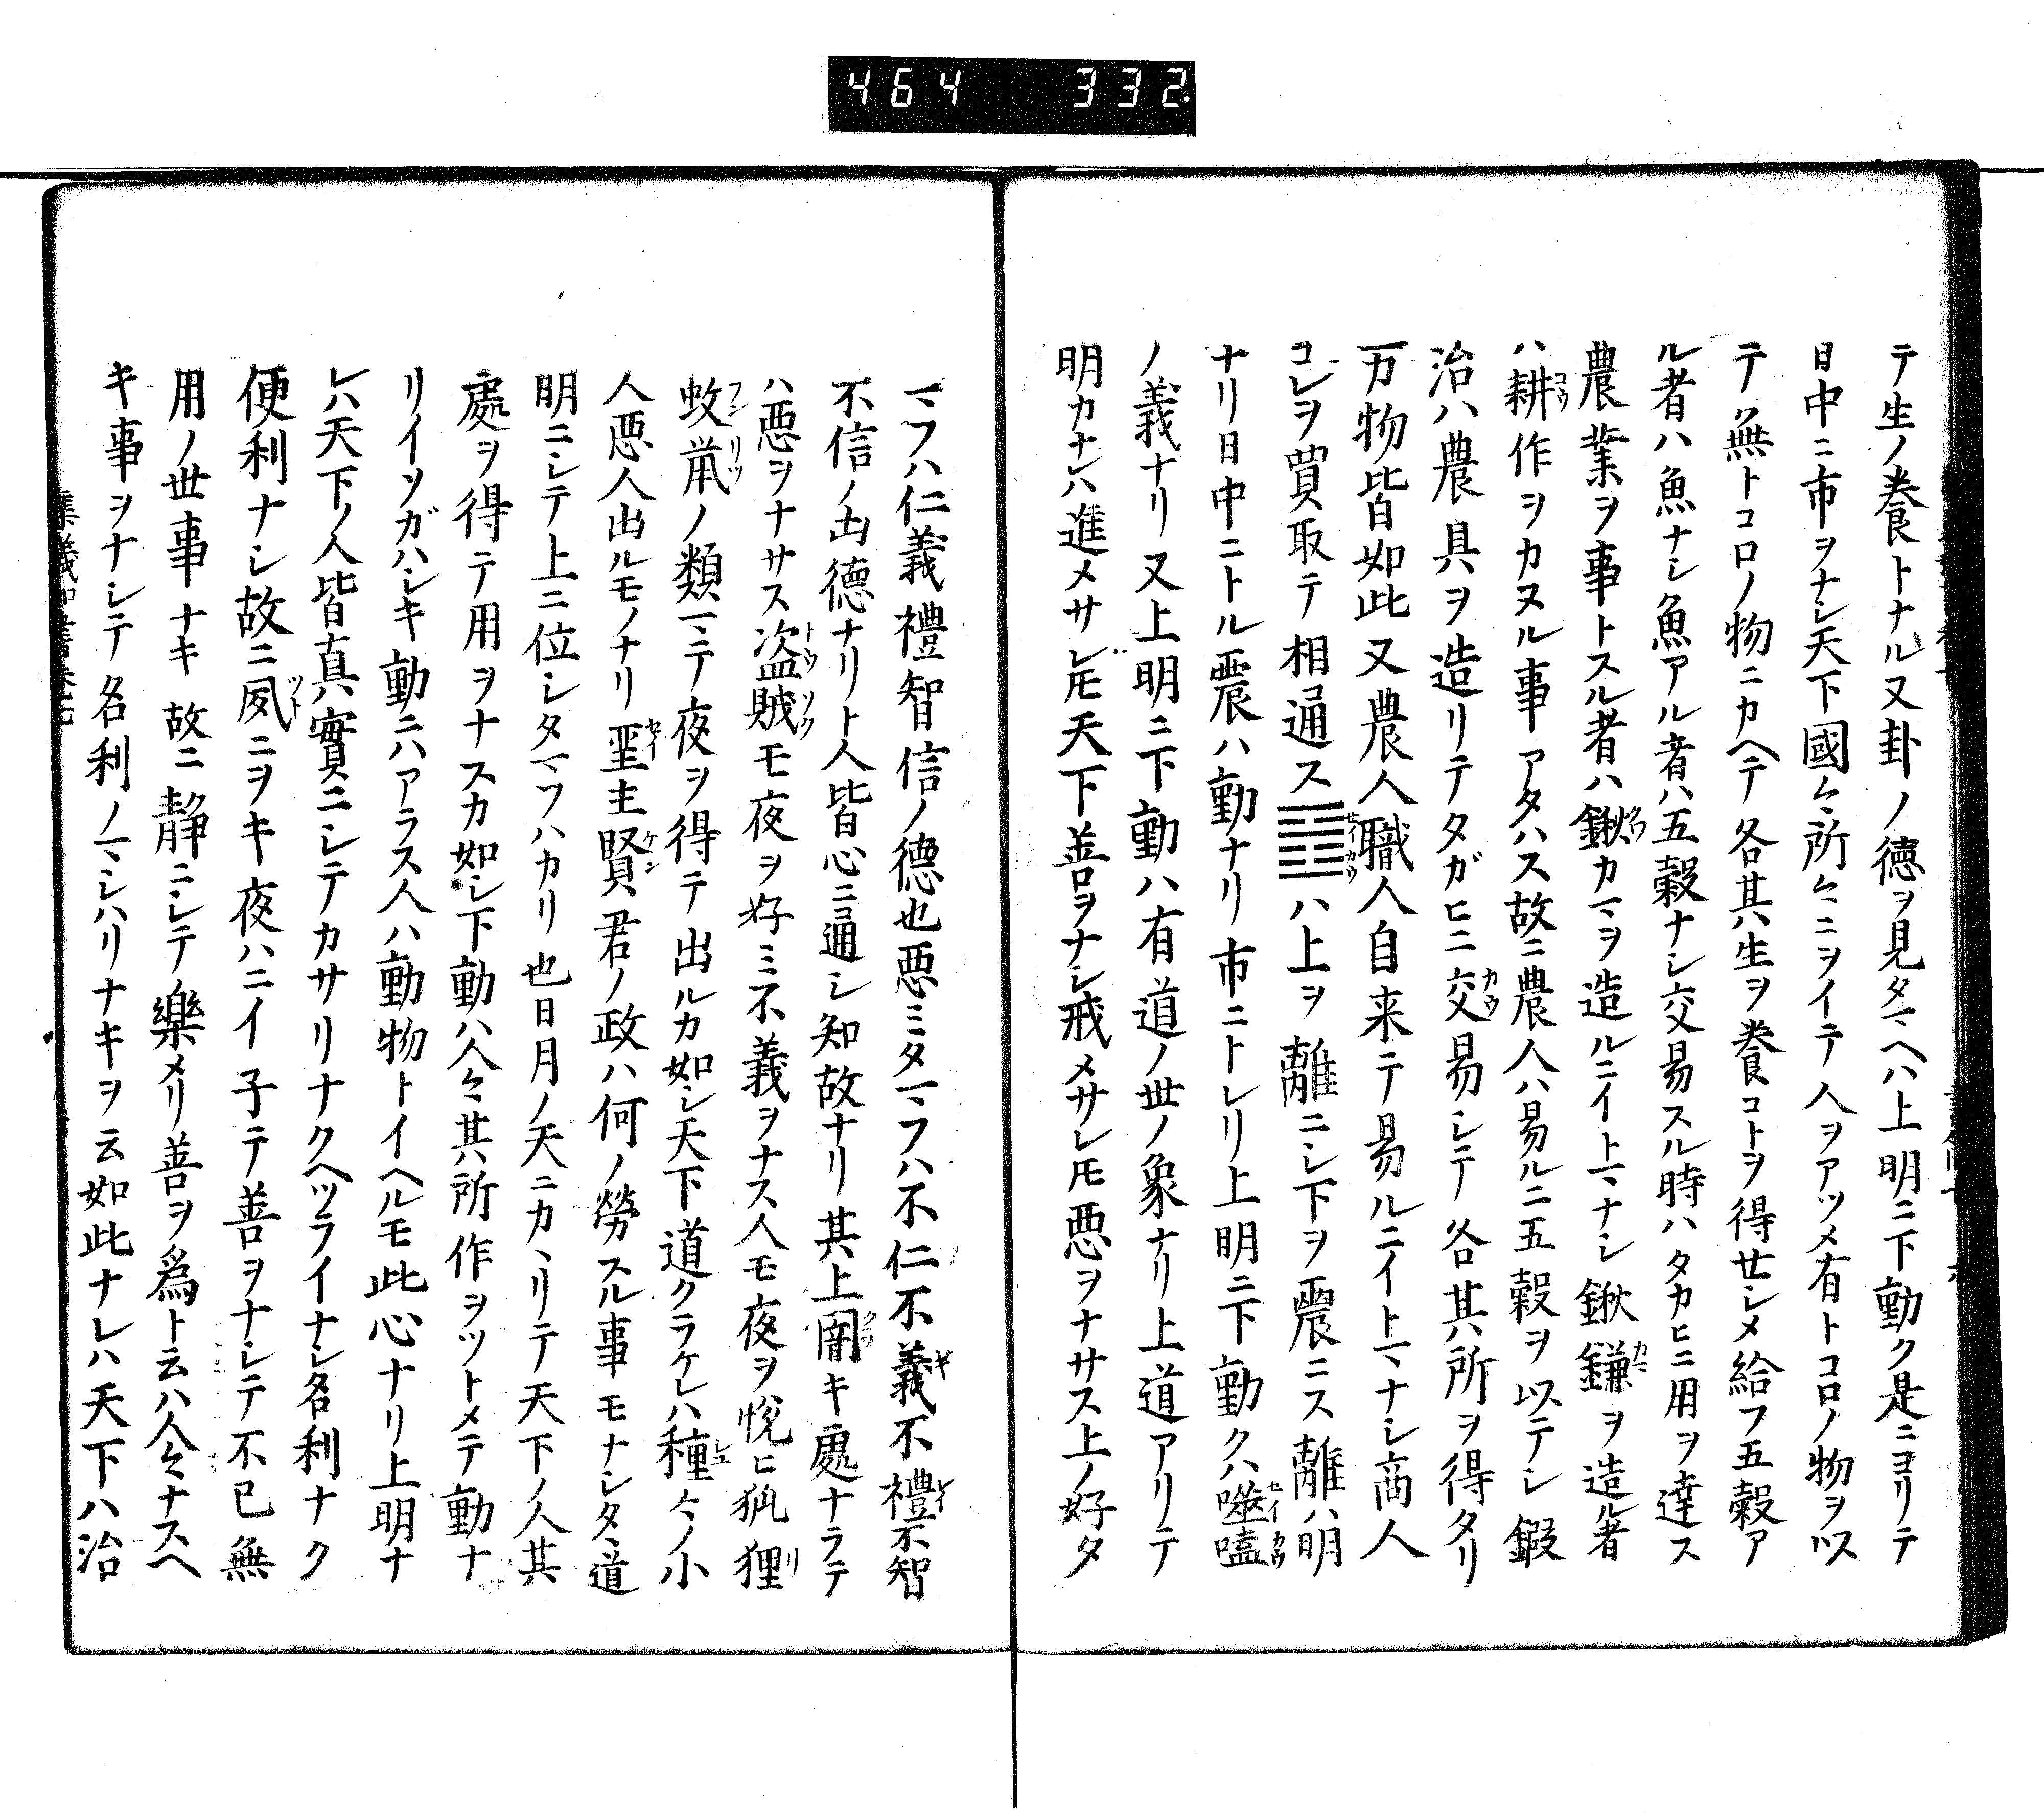 464 332
テ生ノ養トナル又卦ノ徳ヲ見タマヘハ上明ニ下動ク是ニヨリテ
日中ニ市ヲナシ天下國々所々ニヲイテ人ヲアツメ有トコロノ物ヲ以
テ無トコロノ物ニカヘテ各其生ヲ養コトヲ得セシメ給フ五穀ア
ル者ハ魚ナシ魚アル者ハ五穀ナシ交易スル時ハタカヒニ用ヲ達ス
農業ヲ事トスル者ハ鍬カマヲ造ルニイトマナシ鍬鎌ヲ造ル者
ハ耕作ヲカヌル事アタハス故ニ農人ハ易ルニ五穀ヲ以テシ鍛
治ハ農具ヲ造リテタガヒニ交易シテ各其所ヲ得タリ
万物皆如此又農人職人自来テ易ルニイトマナシ商人
コレヲ買取テ相通ス䷔ハ上ヲ離ニシ下ヲ震ニス離ハ明
ナリ日中ニトル震ハ動ナリ市ニトレリ上明ニ下動クハ噬嗑
ノ義ナリ又上明ニ下動ハ有道ノ世ノ象ナリ上道アリテ
明カナレハ進メサレ𪜈天下善ヲナシ戒メサレ𪜈悪ヲナサス上ノ好タ
マフハ仁義禮智信ノ德也悪ミタマフハ不仁不義不禮不智
不信ノ凶德ナリト人皆心ニ通シ知故ナリ其上闇キ處ナラテ
ハ悪ヲナサス盗賊モ夜ヲ好ミ不義ヲナス人モ夜ヲ悦ヒ狐狸
蚊ノ類マテ夜ヲ得テ出ルカ如シ天下道クラケレハ種々ノ小
人悪人出ルモノナリ聖主賢君ノ政ハ何ノ勞スル事モナシタヽ道
明ニシテ上ニ位シタマフハカリ也日月ノ天ニカヽリテ天下ノ人其
處ヲ得テ用ヲナスカ如シ下動ハ人々其所作ヲツトメテ動ナ
リイソガハシキ動ニハアラス人ハ動物トイヘルモ此心ナリ上明ナ
レハ天下ノ人皆真實ニシテカサリナクヘツライナシ名利ナク
便利ナシ故ニ夙ニヲキ夜ハニイ子テ善ヲナシテ不已無
用ノ世事ナキ故ニ静ニシテ樂メリ善ヲ爲ト云ハ人々ナスヘ
キ事ヲナシテ名利ノマシハリナキヲ云如此ナレハ天下ハ治